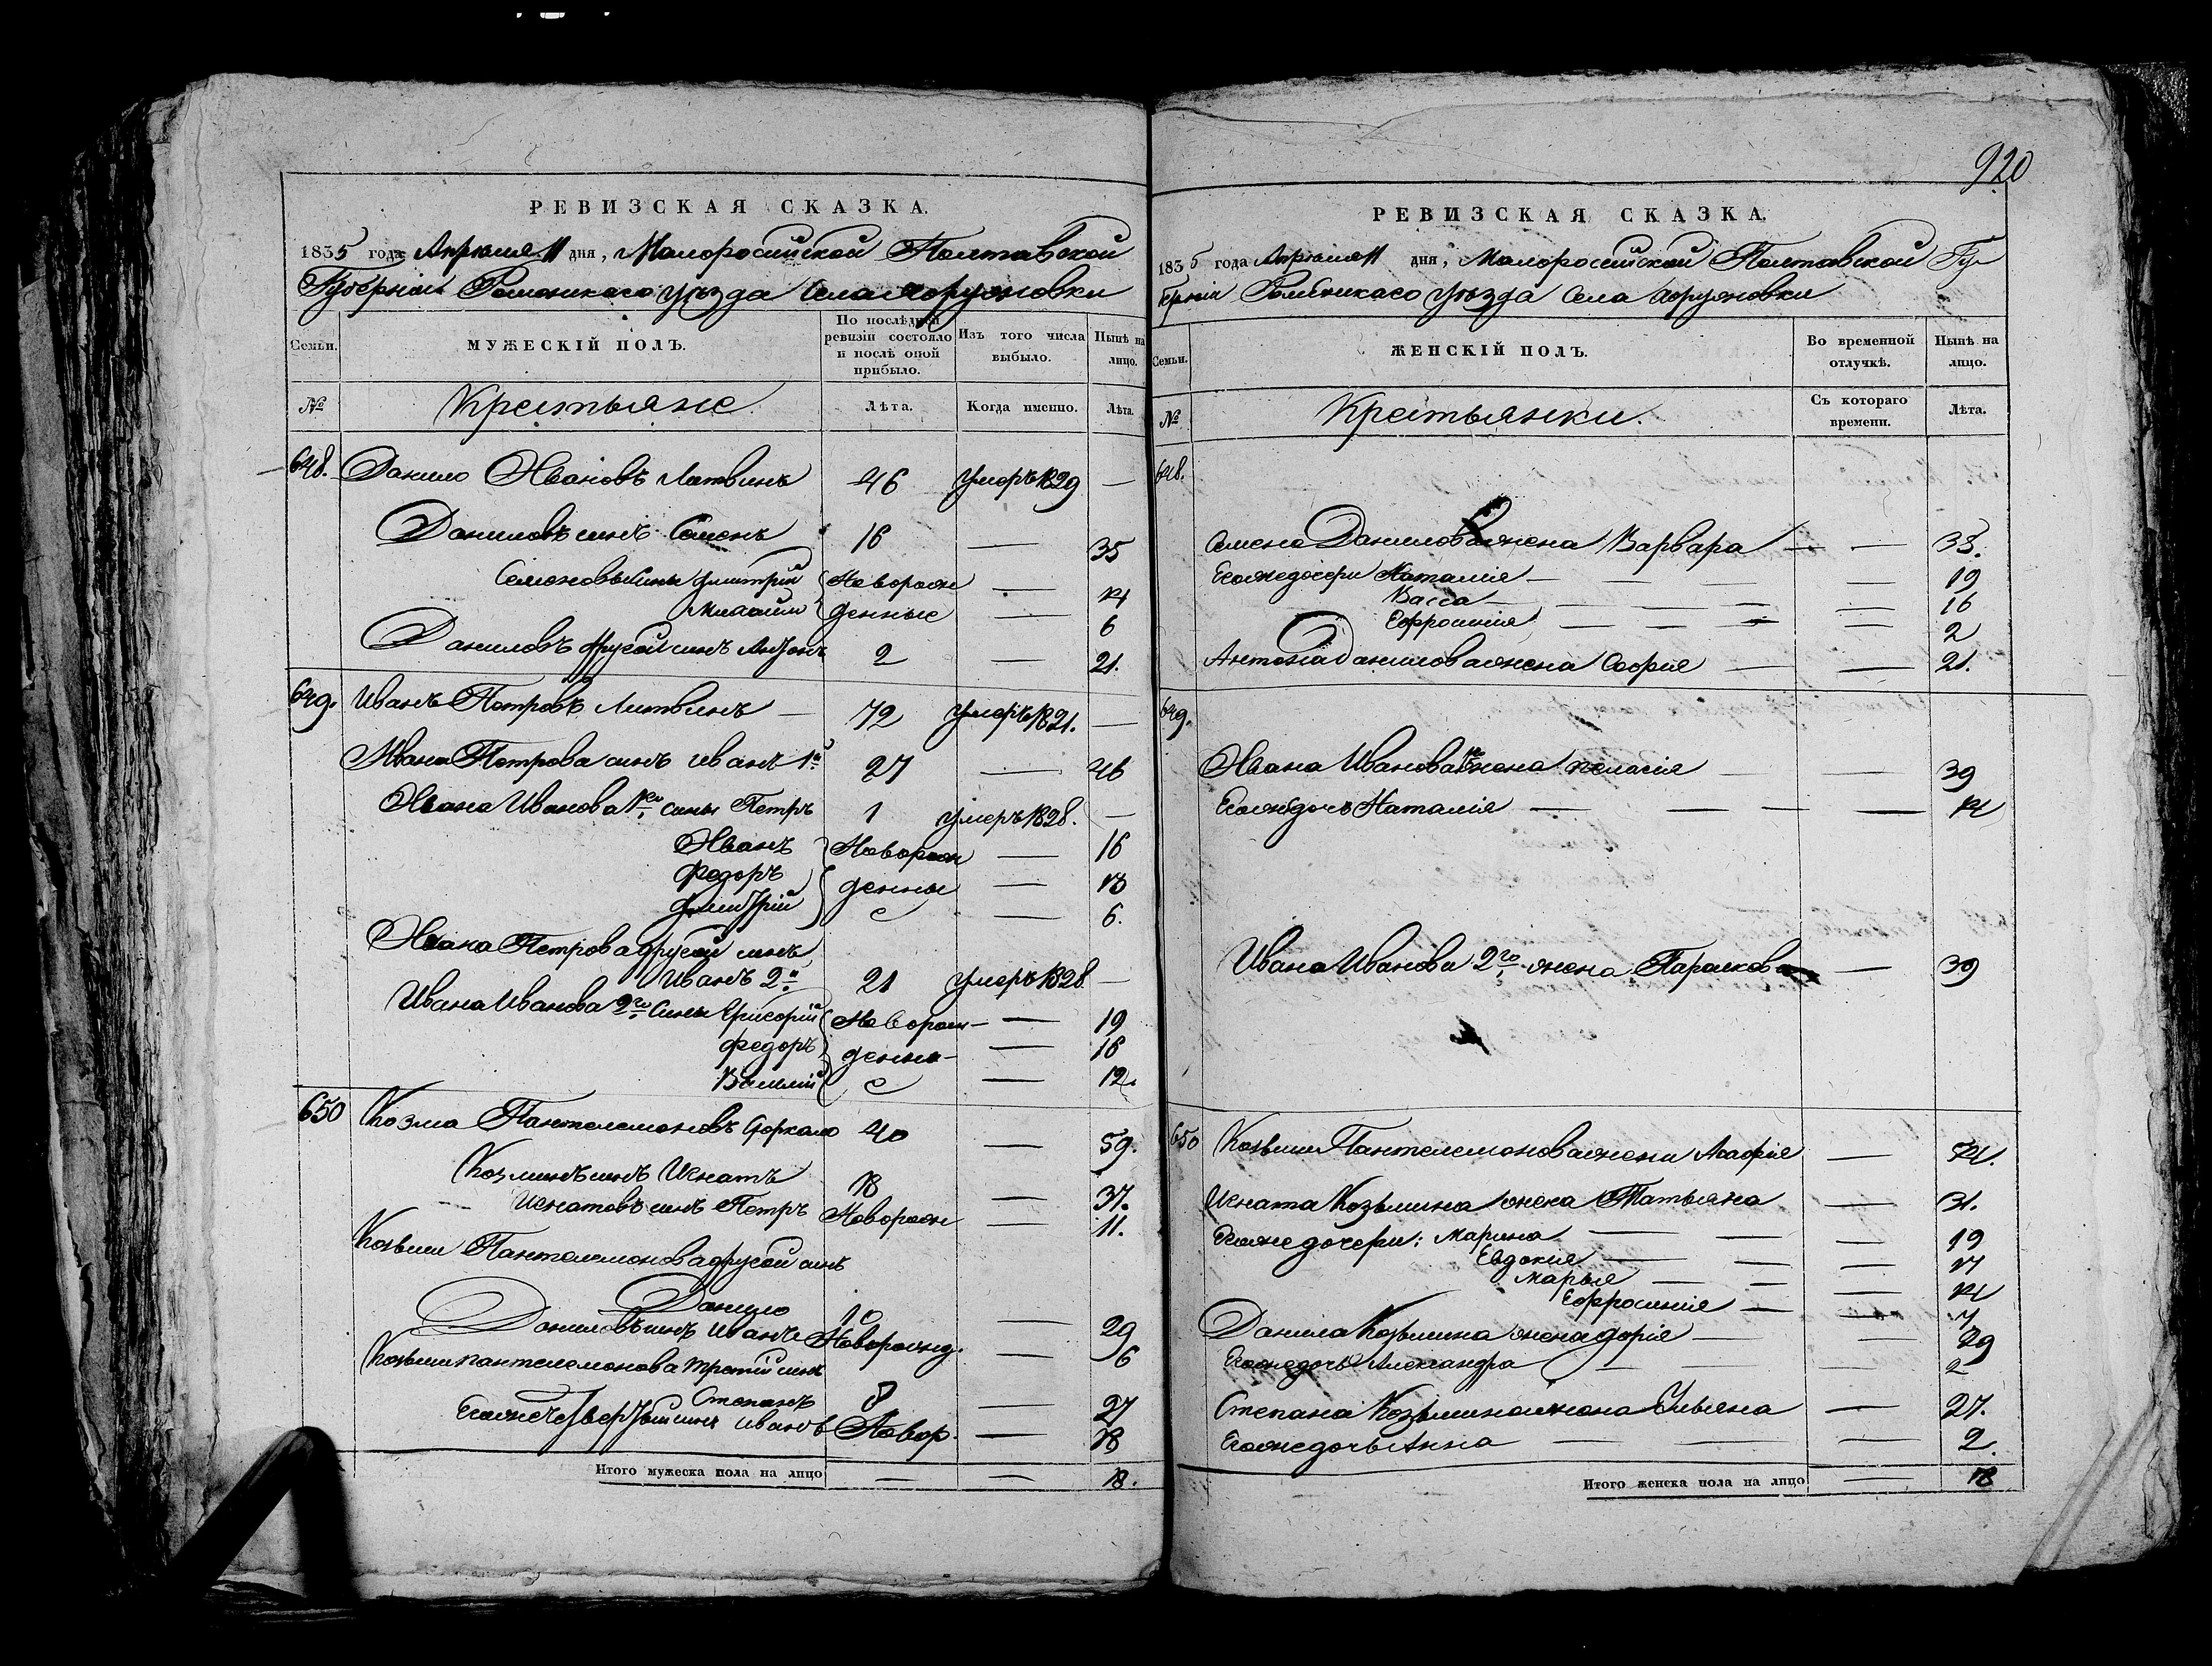 920
РЕВИЗСКАЯ СКАЗКА.
1835 года Апреля 11 дня, Малоросийской Полтавской
Губернии Роменскаго уезда села
Семьи.
МУЖЕСКІЙ ПОЛЪ.
По последней ревизіи состояло и послѣ оной прибыло.
Изъ того числа выбыло.
Нынѣ на лицо.
№
Крестьяне.
Лѣта.
Когда именно.
Лѣта.
648. Данило Ивановъ Литвинъ 46 умеръ 1829 —
Даниловъ синъ Семенъ 16 — 35
Семеновы сины Дмитрій Новорож — 14
Михаилъ денные — 6
Даниловъ другой синъ Антонъ 2 — 21.
649. Иванъ Петровъ Литвинъ — 72 умеръ 1821. —
Ивана Петрова синъ Иванъ 1й 27 — 46
Ивана Иванова 1го сины Петръ 1 умеръ 1828. —
Иванъ Новорож — 16
Федоръ денны — 13
Дмитрій е — 6.
Ивана Петрова другой синъ
Иванъ 2й 21 умеръ 1828 —
Ивана Иванова 2го сины Григорій Поворож — 19
Федоръ денны — 16
Василій е — 12.
650 Козма Пантелемоновъ 40 — 59.
Козминъ синъ Игнатъ 18 — 37.
Игнатовъ синъ Петръ Новорож — 11.
Козьми Пантелемонова другой синъ
Данило 10 — 29
Даниловъ синъ Иванъ Новорожд. — 6
Козьми Пантелемонова третій синъ
Степанъ 8 — 27
Егоже четвертый синъ Иванъ Новор. — 18
Итого мужеска пола на лицо — — 18.
РЕВИЗСКАЯ СКАЗКА.
1835 года Апреля 11 дня, Малоросийской Полтавской Гу
берніи Роменскаго уезда села
Семьи.
ЖЕНСКІЙ ПОЛЪ.
Во временной отлучкѣ.
Нынѣ на лицо.
№
Крестьянки.
Съ котораго времени.
Лѣта.
648.
Семена Данилова жена Варвара — — 38.
Егоже дочери Наталія — — 19
Васса — — 16
Ефросинія — — 2
Антона Данилова жена Софія — — 21.
649.
Ивана Иванова 1го жена Пелагія — — 39
Егоже дочь Наталія — — 14
Ивана Иванова 2го жена Параскова — 39
650 Козьми Пантелемонова жена Агафія — 54.
Игната Козьмина жена Татьяна — 31.
Егоже дочери: Марина — — 19
Евдокія — — 17
Марья — — 14
Ефросинія — — 7
Данила Козьмина жена Дарія — 29
Егоже дочь Александра — 2
Степана Козьмина жена Ульяна — 27.
Егоже дочь Анна — — 2.
Итого женска пола на лицо — 18